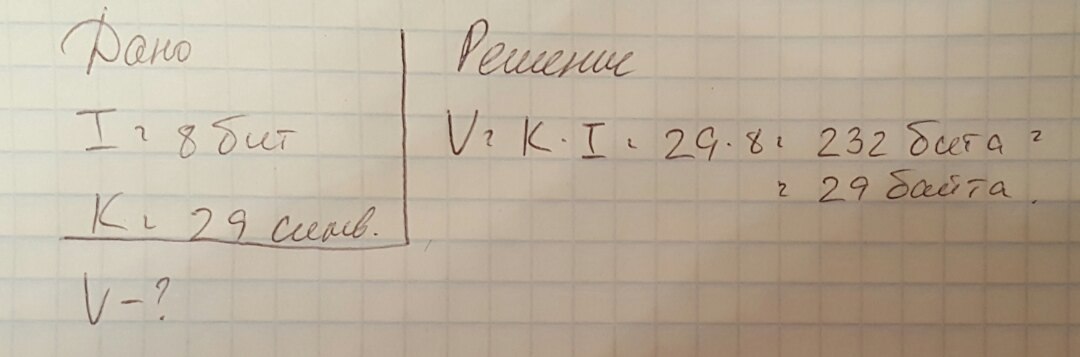 Дано
I = 8 бит
K = 29 симв.
V - ?
Решение
V = K · I = 29 · 8 = 232 бита =
= 29 байта.